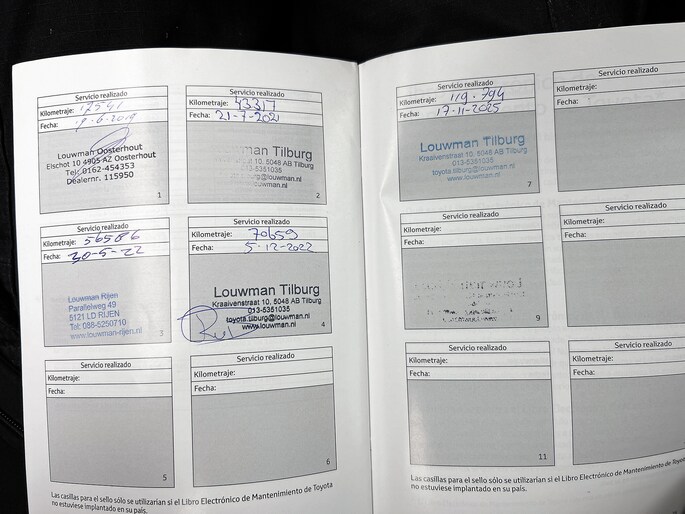 Servicio realizado
Kilometraje: 17541
Fecha: 7-6-2019
Louwman Oosterhout
Elschot 10 4905 AZ Oosterhout
Tel: 0162-454353
Dealernr. 115950
1
Servicio realizado
Kilometraje: 43317
Fecha: 21-7-2021
Louwman Tilburg
Kraaivenstraat 10, 5048 AB Tilburg
013-5351035
toyota.tilburg@louwman.nl
www.louwman.nl
2
Servicio realizado
Kilometraje: 56586
Fecha: 30-5-22
Louwman Rijen
Parallelweg 49
5121 LD RIJEN
Tel: 088-5250710
www.louwman-rijen.nl
3
Servicio realizado
Kilometraje: 70659
Fecha: 5-12-2022
Louwman Tilburg
Kraaivenstraat 10, 5048 AB Tilburg
013-5351035
toyota.tilburg@louwman.nl
www.louwman.nl
4
Servicio realizado
Kilometraje:
Fecha:
5
Servicio realizado
Kilometraje:
Fecha:
6
Las casillas para el sello sólo se utilizarían si el Libro Electrónico de Mantenimiento de Toyota
no estuviese implantado en su país.
Servicio realizado
Kilometraje: 119.794
Fecha: 17-11-2025
Louwman Tilburg
Kraaivenstraat 10, 5048 AB Tilburg
013-5351035
toyota.tilburg@louwman.nl
www.louwman.nl
7
Servicio realizado
Kilometraje:
Fecha:
Servicio realizado
Kilometraje:
Fecha:
9
Servicio realizado
Kilometraje:
Fecha:
Servicio realizado
Kilometraje:
Fecha:
11
Servicio realizado
Kilometraje:
Fecha:
Las casillas para el sello sólo se utilizarían si el Libro Electrónico de Mantenimiento de Toyota
no estuviese implantado en su país.